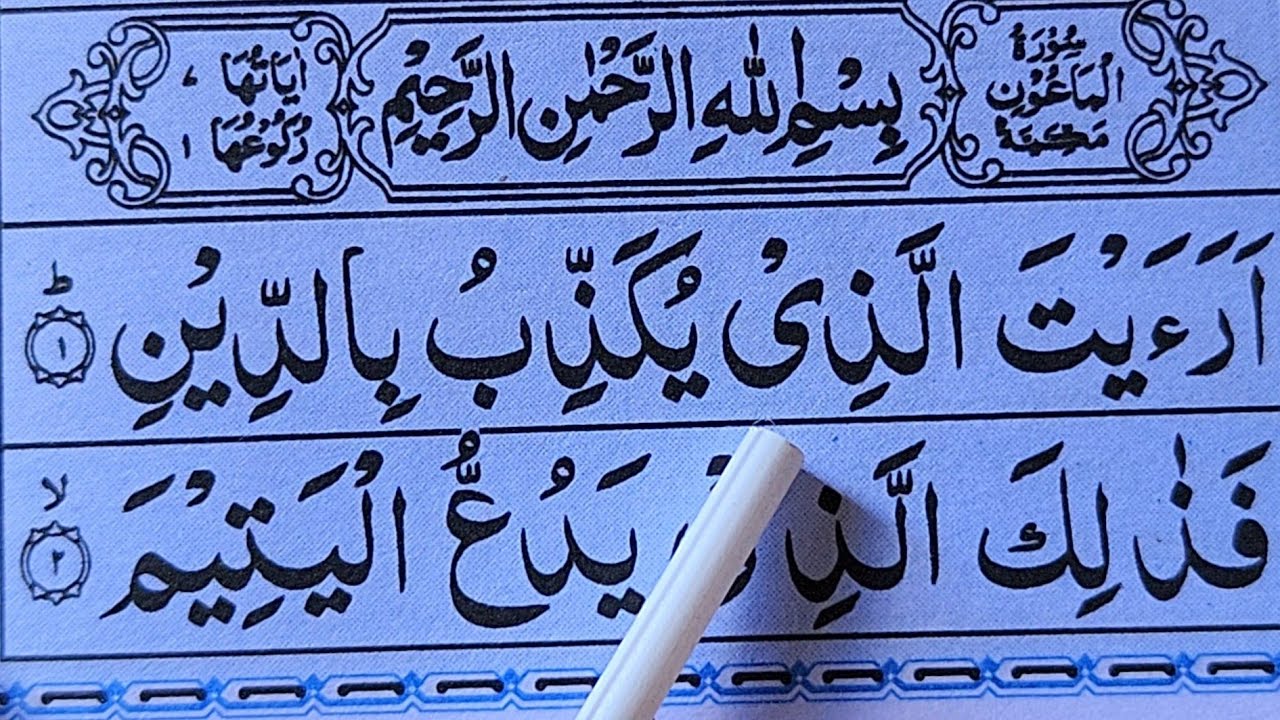 سُوْرَةُ
الْمَاعُوْنِ
مَكِّيَّةٌ
بِسْمِ اللّٰهِ الرَّحْمٰنِ الرَّحِيْمِ
اٰيَاتُهَا ٧
رُكُوْعُهَا ١
اَرَءَيْتَ الَّذِىْ يُكَذِّبُ بِالدِّيْنِ ؕ ١
فَذٰلِكَ الَّذِىْ يَدُعُّ الْيَتِيْمَ ۙ ٢